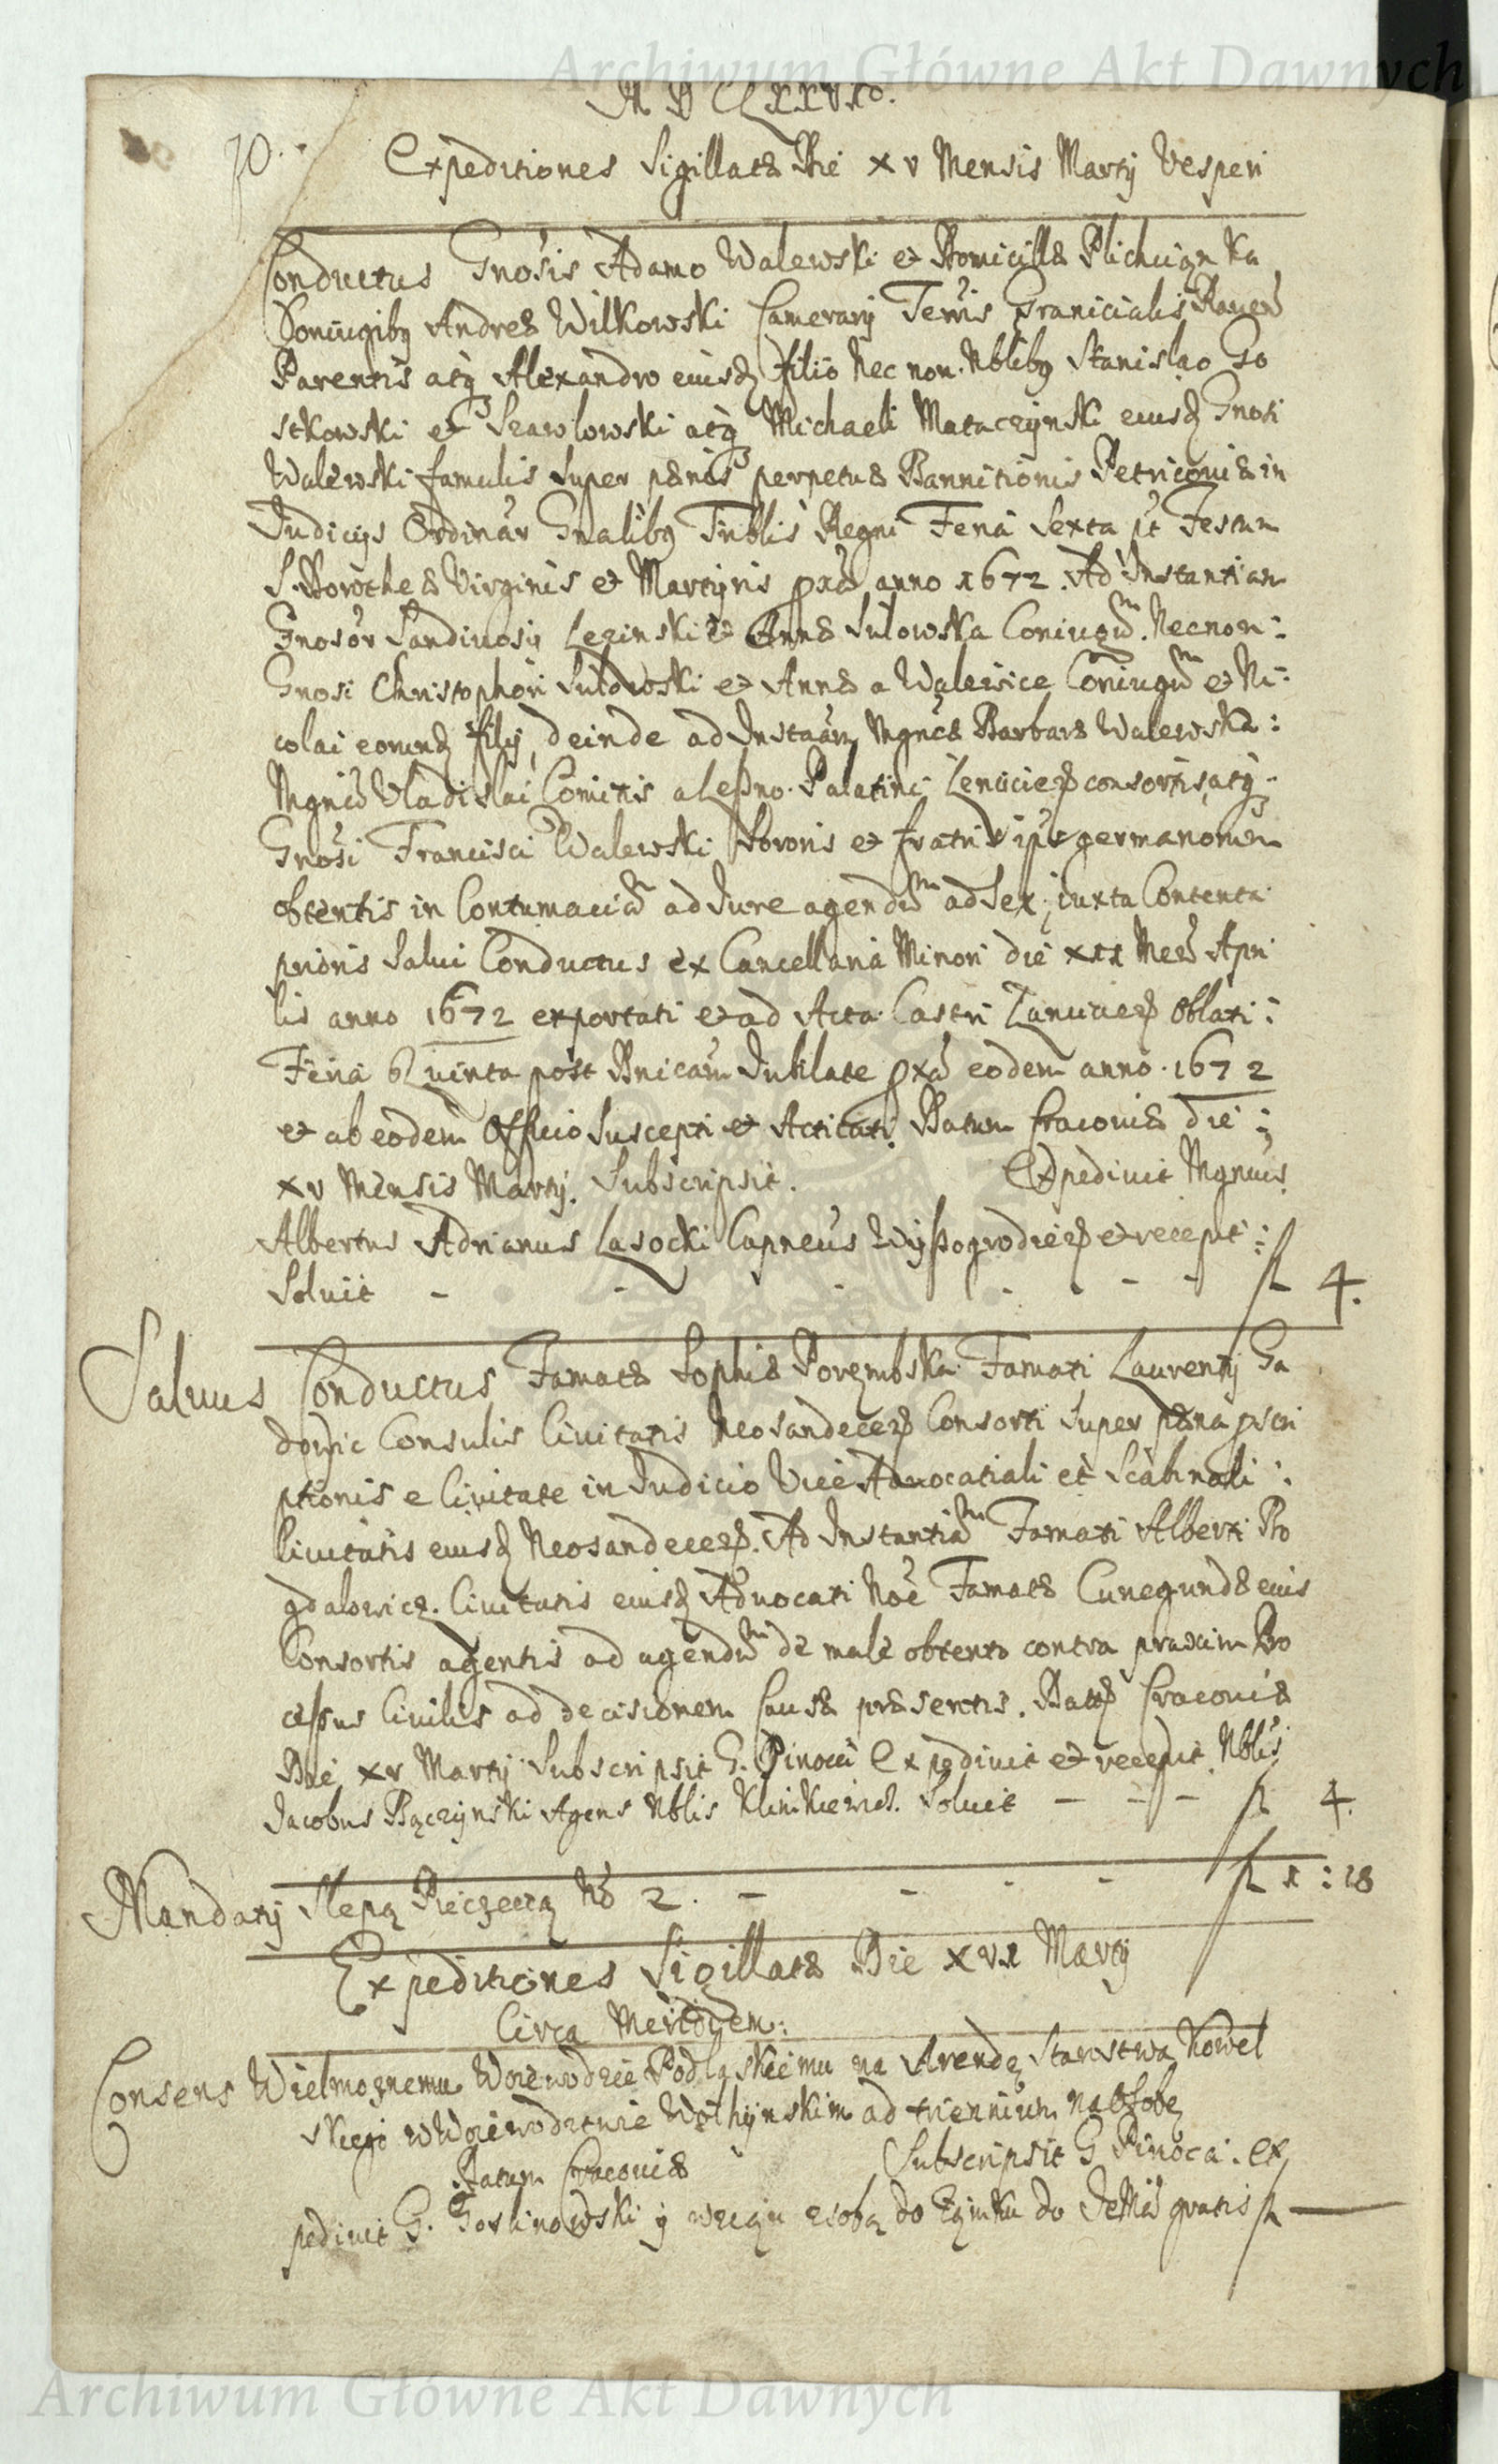 Archiwum Główne Akt Dawnych
M D C LXXVIto.
70.
Expeditiones Sigillatæ Die XV Mensis Martij Vesperi
Conductus Gnosis Adamo Walewski et Domicillæ Plichcianka
Coniugibq Andreæ Wilkowski Camerarij Terris Granicialis Rauen
Parentis atq Alexandro eiusd filio Nec non Nblibq Stanislao Go
stkowski et Szawlowski atq Michaeli Mataczynski eiusd Gnosi
Walewski famulis super pænis perpetuæ Bannitionis Petricouiæ in
Judicijs Ordinar Gnalibq Triblis Regni Feria Sexta pt Festum
S. Dorotheæ Virginis et Martyris pxa anno 1672. Ad Instantiam
Gnosor Sandiuosij Lezinski et Annæ Sulowska Coniugum. Necnon:
Gnosi Christophori Sulowski et Annæ a Walewice Coniugum et Ni:
colai eorund filij, deinde ad Instaam Mgncæ Barbaræ Walewska:
Mgnci Vladislai Comitis a Leszno Palatini Lenciciens consortis, atq
Gnosi Francisci Walewski Sororis et fratris ipse germanorum
obtentis in Contumaciam ad Jure agendum ad Sex: iuxta Contenta
prioris Salui Conductus ex Cancellaria Minori die XII Mens Apri
lis anno 1672 exportati et ad Acta Castri Lanciciens Oblati:
Feria Quinta post Dnicam Jubilate pxa eodem anno 1672
et ab eodem Officio Suscepti et Acticati. Datum Cracouiæ die:
XV Mensis Martij. Subscripsit. Expediuit Mgnus
Albertus Adrianus Lasocki Capneus Wyszogrodiens et recepit:
Soluit - - - - - - - fl 4.
Saluus Conductus Famatæ Sophiæ Porembska Famati Laurentij Ga
dowic Consulis Ciuitatis Neosandecens Consorti Super pæna pscri
ptionis e Ciuitate in Judicio Vice Aduocatiali et Scabinali:
Ciuitatis eiusd Neosandecens. Ad Instantiam Famati Alberti Ro
gdalowicz. Ciuitatis eiusd Aduocati Noe Famatæ Cunegundæ eius
Consortis agentis ad agendum de male obtento contra praxim Pro
cessus Ciuilis ad decisionem Causæ præsentis. Datt Cracouiæ
Die XV Martij Subscripsit G. Pinocci Expediuit et recepit Nblis
Jacobus Bączynski Agens Nblis Klinkiewicz. Soluit - - - fl 4.
Mandaty Slepą Pieczęcią No 2. - - - - fl 1 : 18
Expeditiones Sigillatæ Die XVI Martij
Circa Meridiem:
Consens Wielmoznemu Woiewodzie Podlaskiemu na Arendę Starostwa Kowel
skiego w Woiewodztwie Wołhynskim ad triennium na Osobę
Datum Cracouiæ Subscripsit G Pinocci. Ex
pediuit G. Goslinowski y wziął osobą do do gratis fl —
Archiwum Główne Akt Dawnych